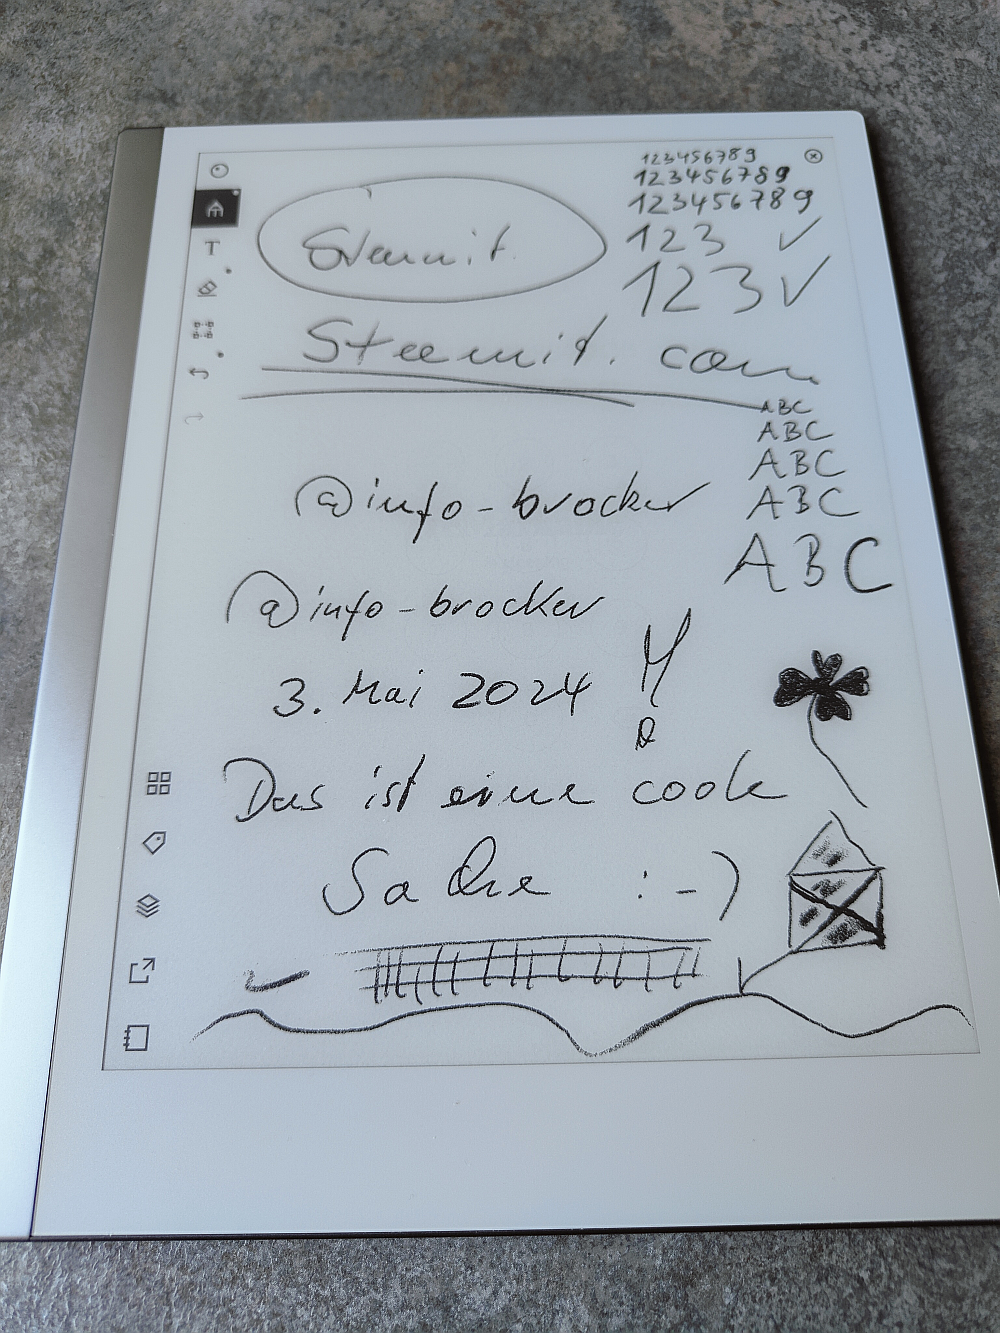 123456789
123456789
123456789
Steemit.
123 ✓
123 ✓
Steemit.com
ABC
ABC
ABC
ABC
ABC
@info-brocker
@info-brocker
3. Mai 2024 !
Das ist eine coole
Sache :-)
T